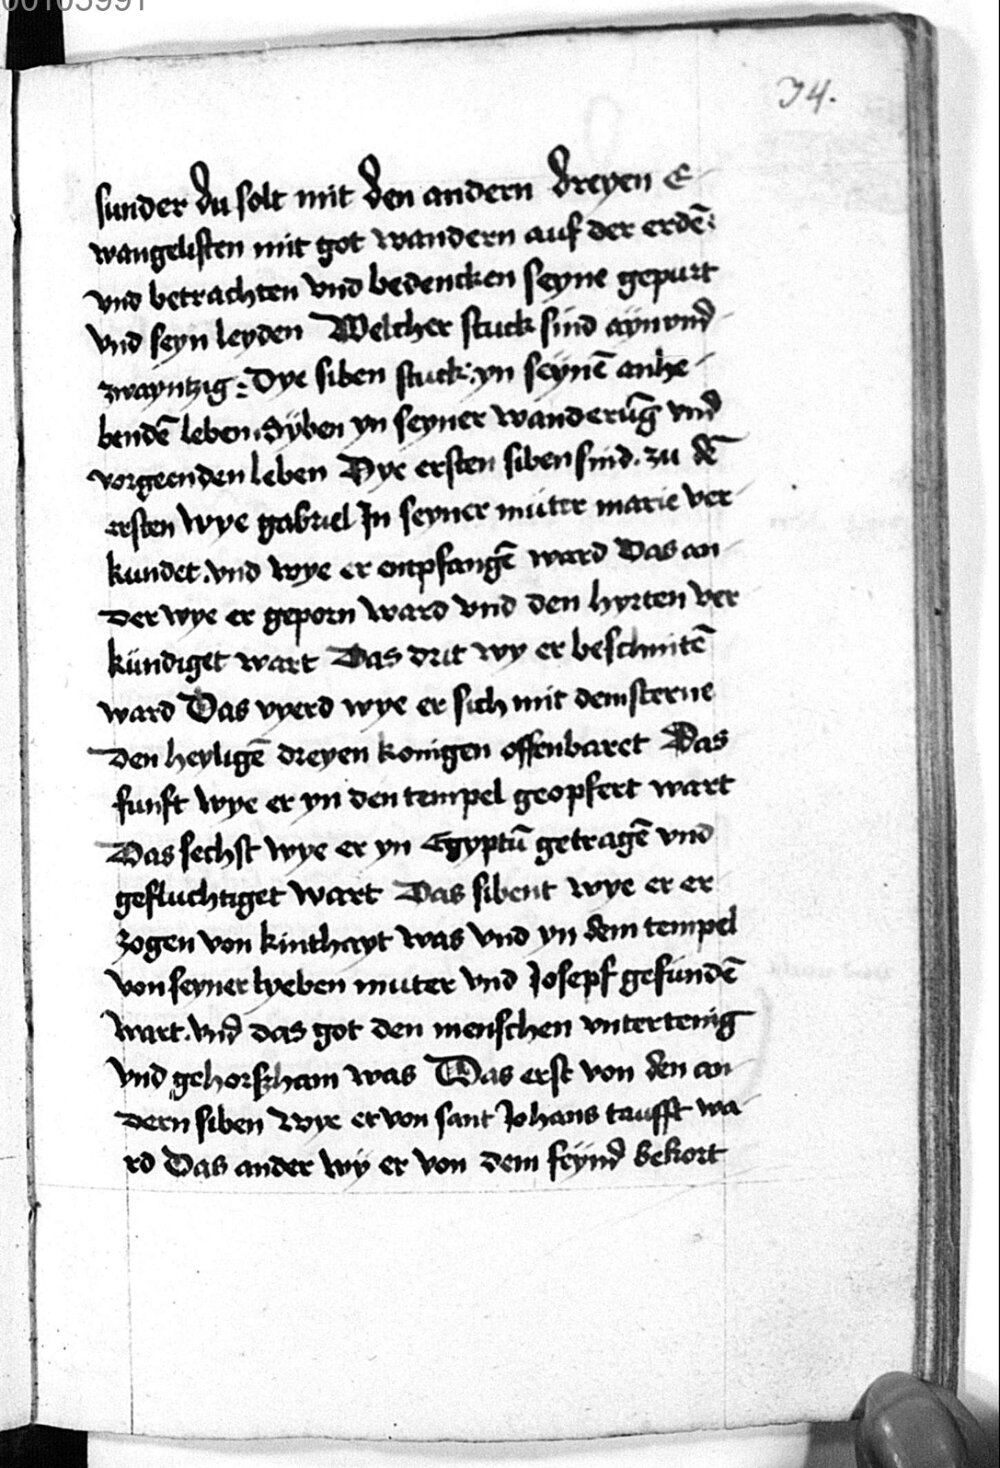 00105991
74.
sunder du solt mit den andern dreyen e
wangelisten mit got wandern auf der erdē:
vnd betrachten vnd bedencken seyne gepurt
vnd seyn leyden Welcher stuck sind aynvnd
zwayntzig: Dye siben stuck: yn seynē anhe
bendē leben. Syben yn seyner wanderūg vnd
vorgeenden leben Dye ersten siben sind. zu dē
ersten wye gabriel Jn seyner muter marie ver
kundet. vnd wye er entpfangē ward Das an
der wye er geporn ward vnd den hyrten ver
kündiget wart Das drit wy er beschnitē
ward Das vyerd wye er sich mit dem sterne
den heyligē dreyen konigen offenbaret Das
funft wye er yn den tempel geopfert wart
Das sechst wye er yn Egyptū getragē vnd
gefluchtiget wart Das sibent wye er er
zogen von kinthayt was vnd yn dem tempel
von seyner lyeben muter vnd Josepf gefundē
wart. vnd das got den menschen vntertenig
vnd gehorsham was Das erst von den an
dern siben wye er von sant Johans taufft wa
rd Das ander wy er von dem feynd bekort